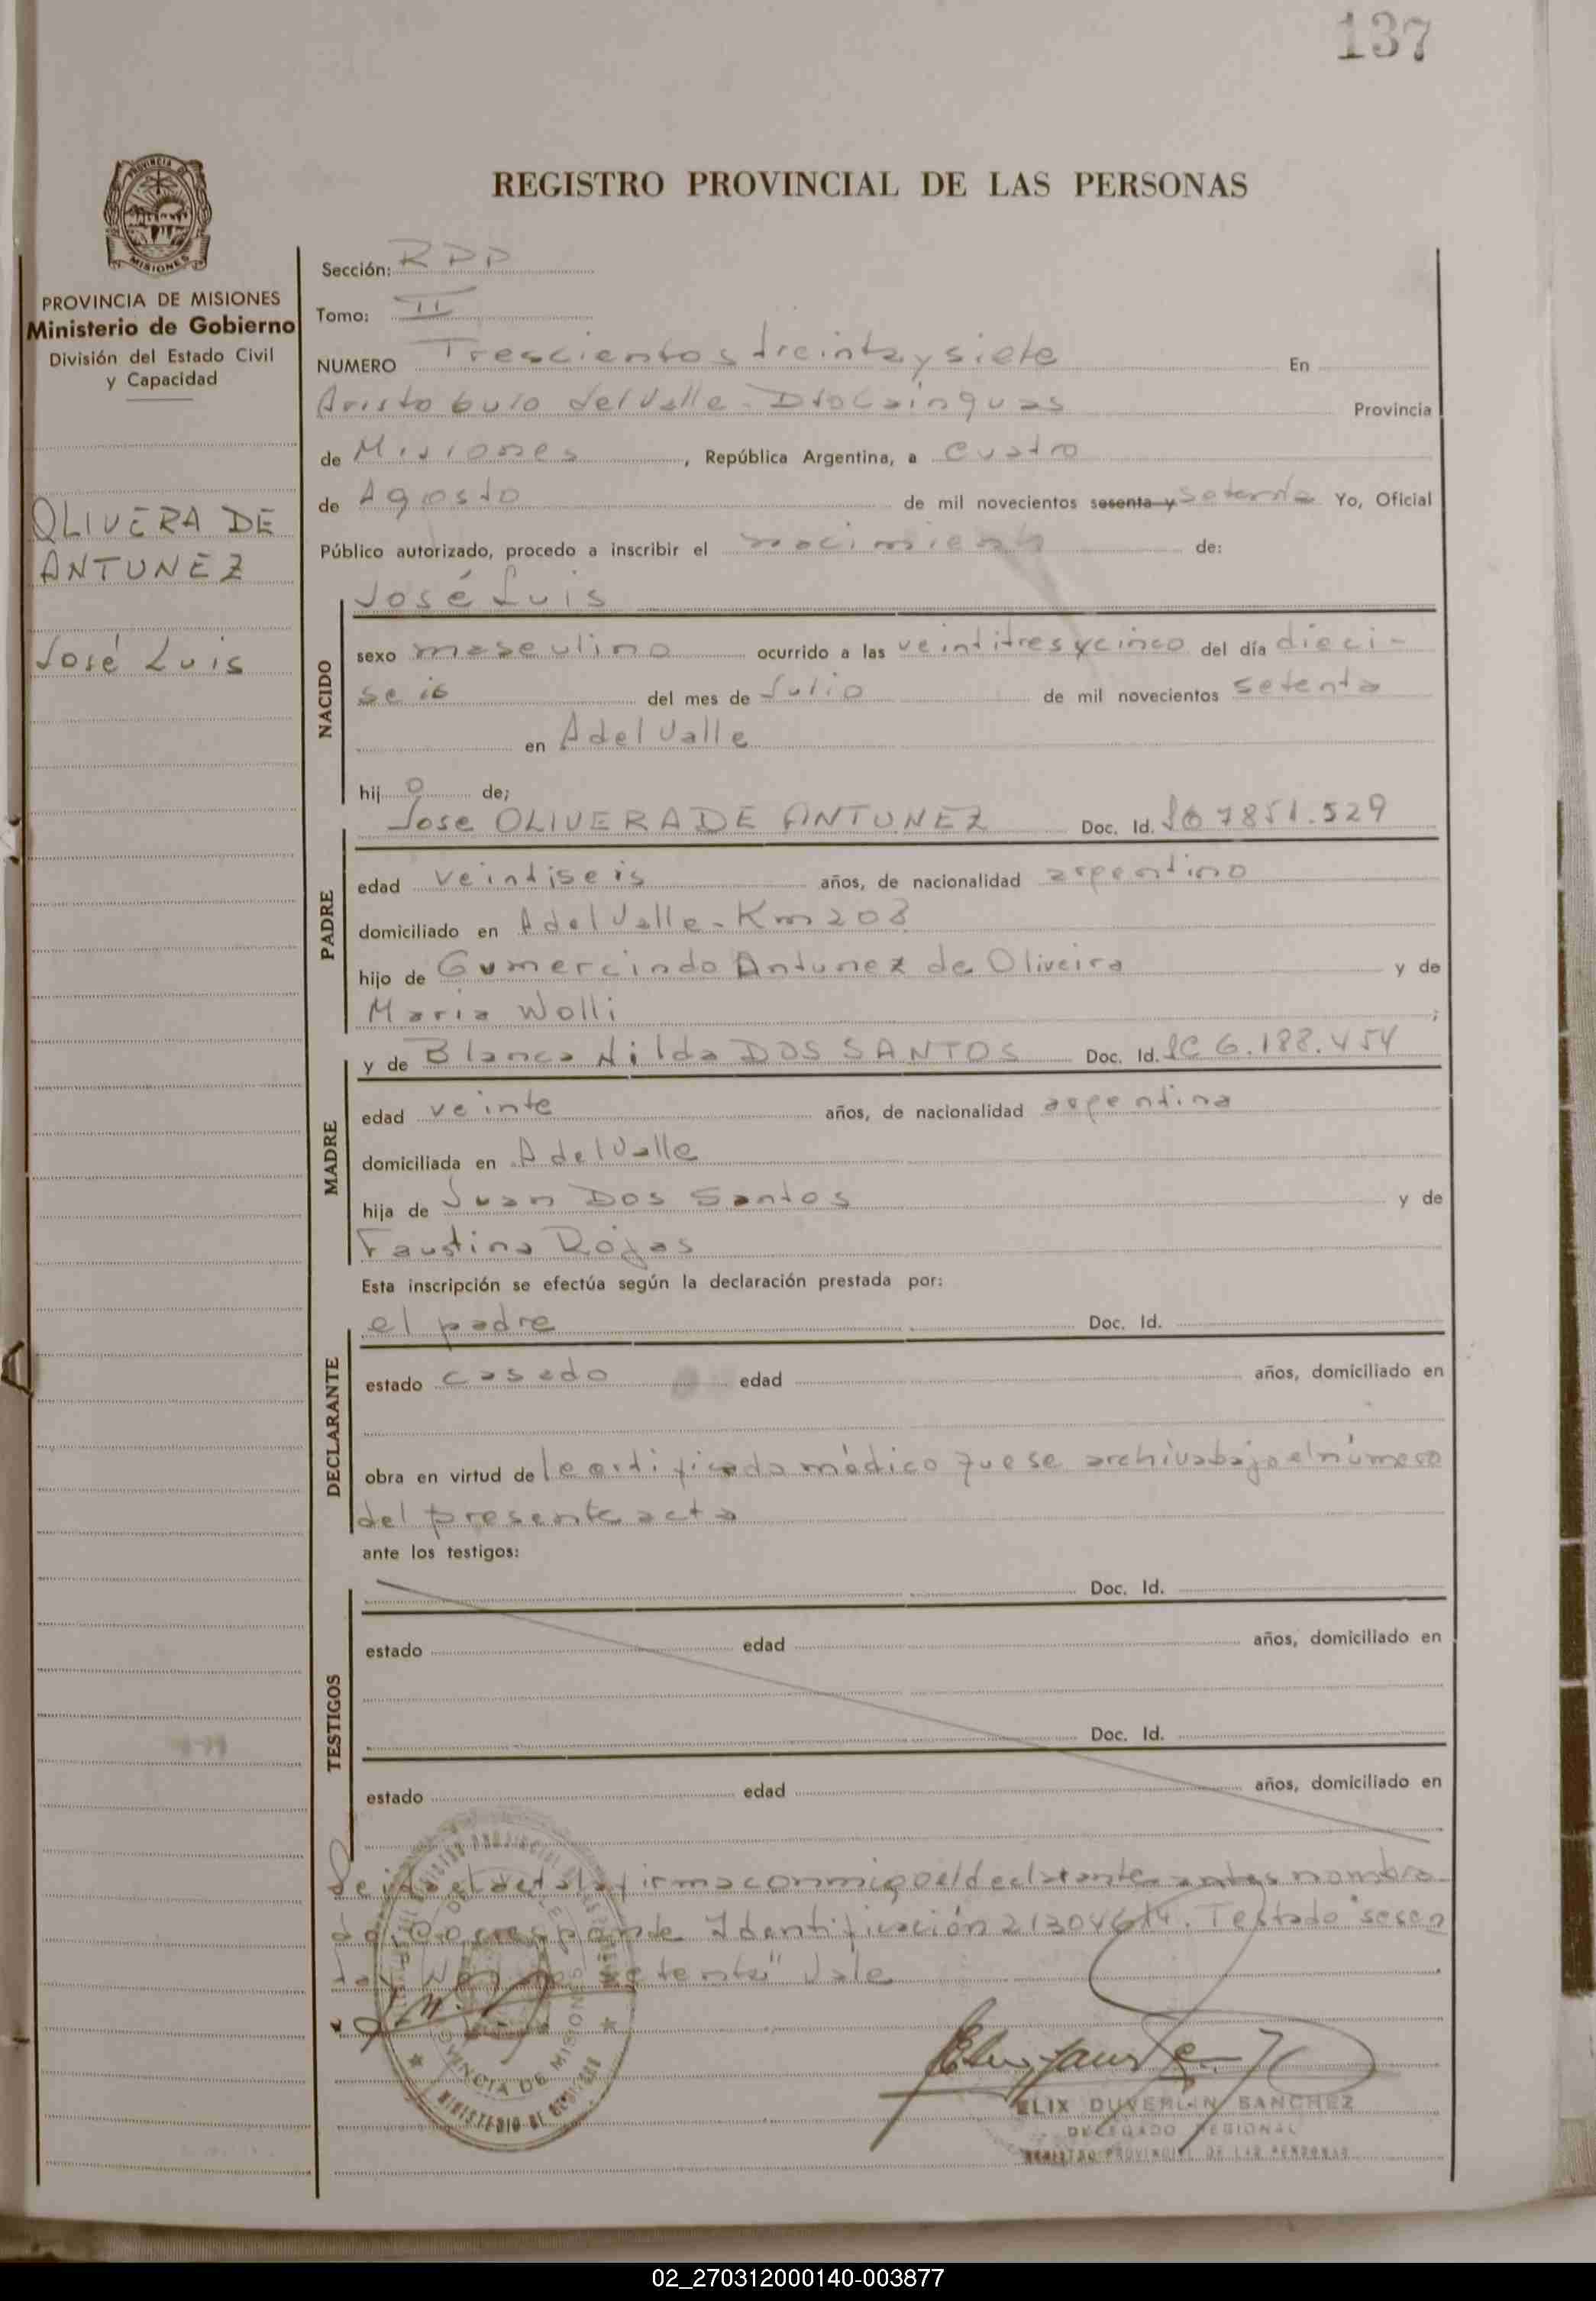 137
REGISTRO PROVINCIAL DE LAS PERSONAS
PROVINCIA DE MISIONES
Ministerio de Gobierno
División del Estado Civil
y Capacidad
OLIVERA DE
ANTUNEZ
José Luis
Sección: RDP
Tomo: II
NUMERO Trescientos treinta y siete En
Aristobulo del Valle - Dto Cainguas Provincia
de Misiones, República Argentina, a cuatro
de Agosto de mil novecientos sesenta y setenta Yo, Oficial
Público autorizado, procedo a inscribir el nacimiento de:
José Luis
NACIDO
sexo masculino ocurrido a las veintitres y cinco del día dieci-
seis del mes de Julio de mil novecientos setenta
en A del Valle
hijo de;
Jose OLIVERA DE ANTUNEZ Doc. Id. 7851.529
PADRE
edad veintiseis años, de nacionalidad argentino
domiciliado en A del Valle - Km 208
hijo de Gumercindo Antunez de Oliveira y de
Maria Wolli;
y de Blanca Nilda DOS SANTOS Doc. Id. LC 6.188.454
MADRE
edad veinte años, de nacionalidad argentina
domiciliada en A del Valle
hija de Juan Dos Santos y de
Faustina Rojas
Esta inscripción se efectúa según la declaración prestada por:
el padre Doc. Id.
DECLARANTE
estado casado edad años, domiciliado en
obra en virtud del certificado médico que se archiva bajo el número
del presente acta
ante los testigos:
Doc. Id.
TESTIGOS
estado edad años, domiciliado en
Doc. Id.
estado edad años, domiciliado en
Leida el acta la firma conmigo el declarante antes nombra
do. Corresponde Identificación 21304614. Testado "sesen
setenta" Vale
PROVINCIA DE MISIONES
MINISTERIO DE GOBIERNO
ELIX DUVERLIN SANCHEZ
DELEGADO REGIONAL
REGISTRO PROVINCIAL DE LAS PERSONAS
02_270312000140-003877